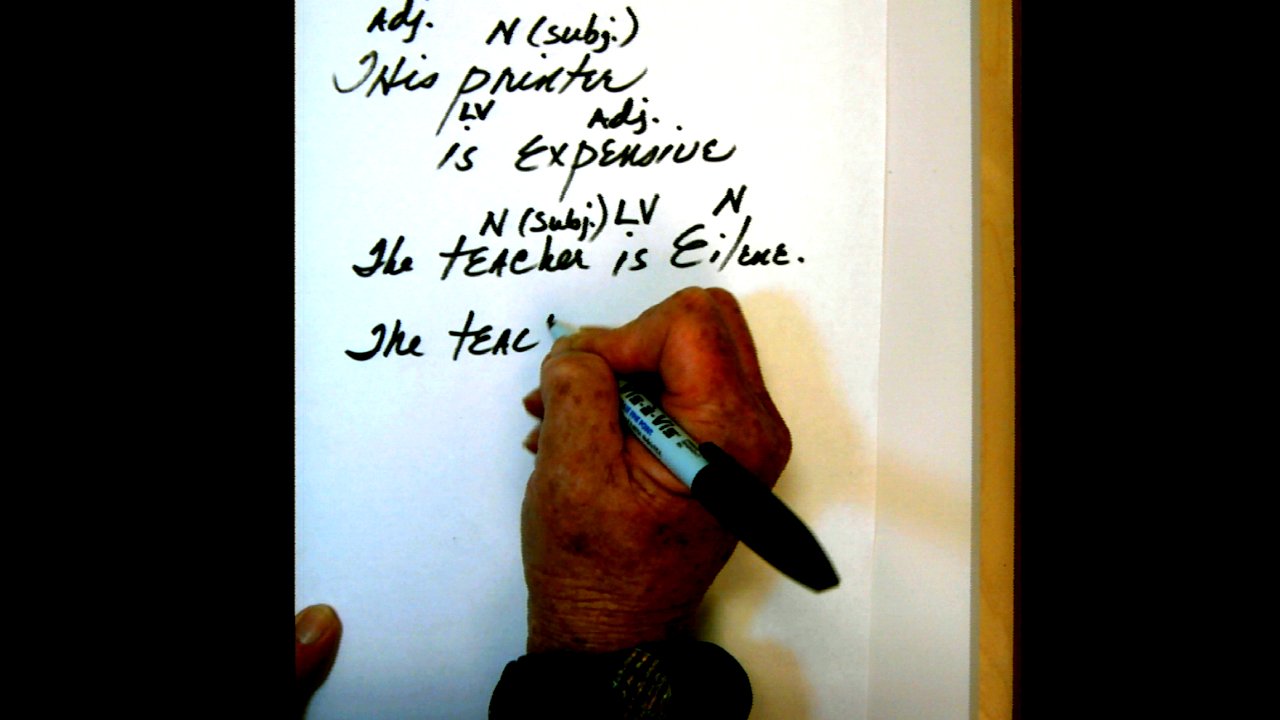 Adj. N (subj.)
THis printer
LV Adj.
is Expensive
N (subj.) LV N
The tEAcher is Eilene.
The tEAC
Vis-à-Vis